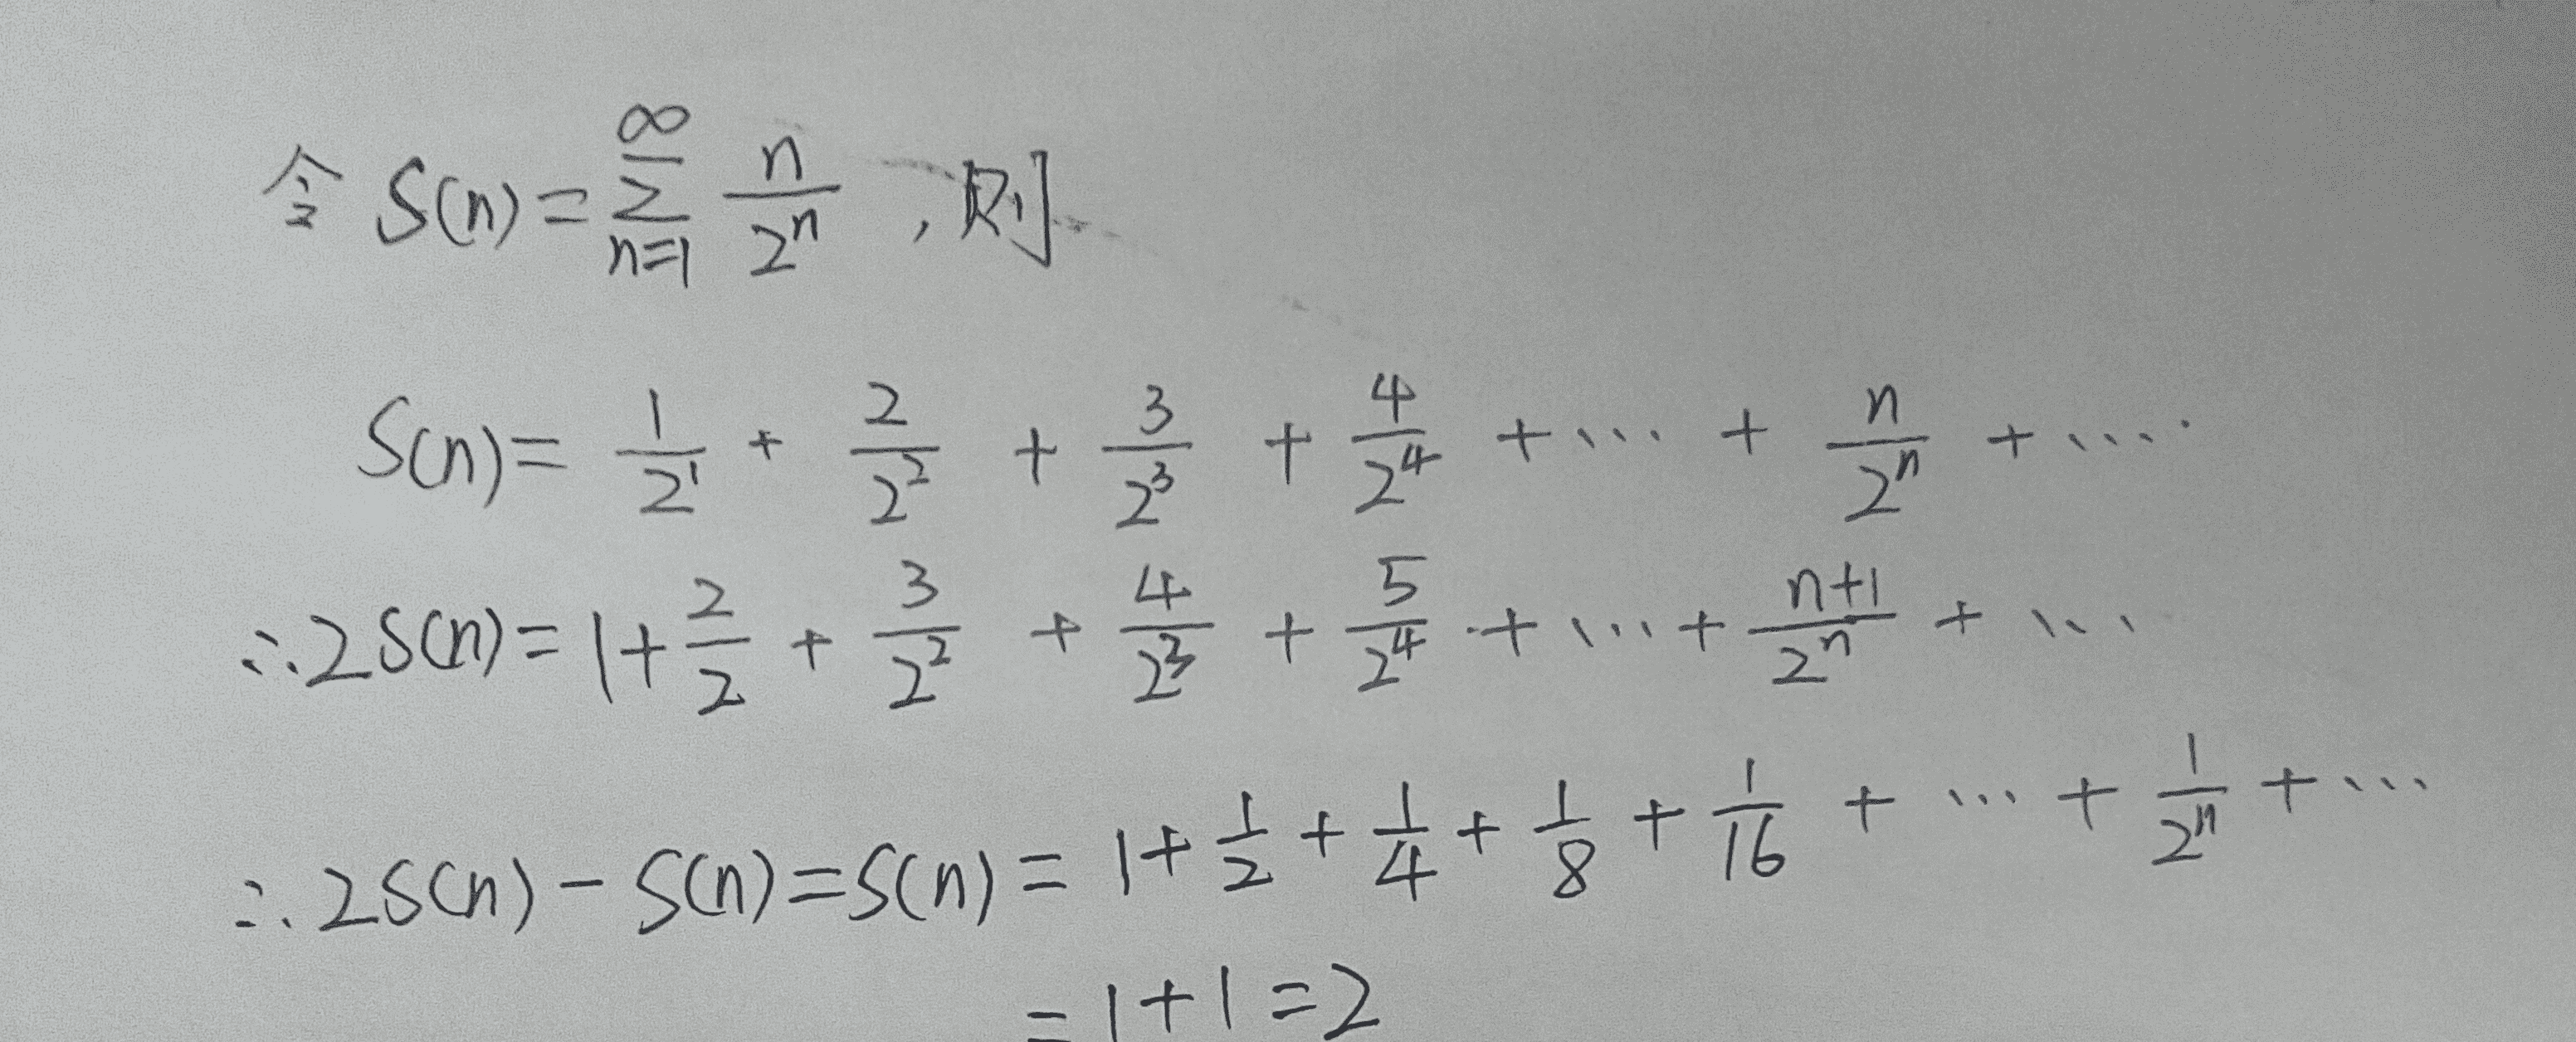 令 S(n) = ∑_{n=1}^{∞} n/2^n , 则
S(n) = 1/2^1 + 2/2^2 + 3/2^3 + 4/2^4 + ··· + n/2^n + ····
∴ 2S(n) = 1 + 2/2 + 3/2^2 + 4/2^3 + 5/2^4 + ··· + (n+1)/2^n + ···
∴ 2S(n) - S(n) = S(n) = 1 + 1/2 + 1/4 + 1/8 + 1/16 + ··· + 1/2^n + ···
= 1 + 1 = 2